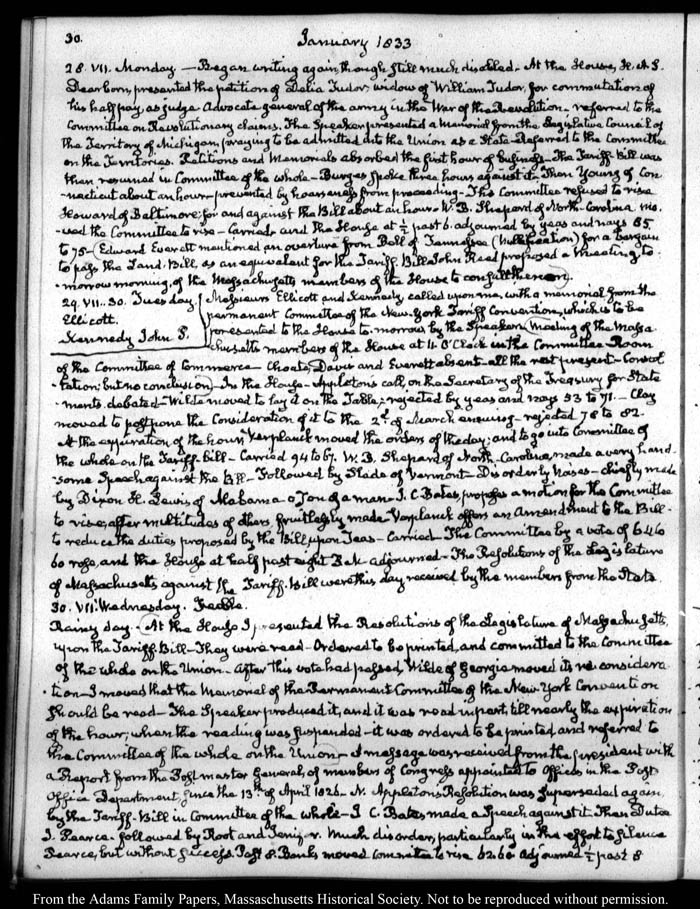 30.
January 1833
28. VII. Monday. — Began writing again, though still much disabled. At the House, H. A. S.
Dearborn, presented the petition of Delia Tudor, widow of William Tudor, for commutation of
his half pay, as judge Advocate general of the army in the War of the Revolution – referred to the
Committee on Revolutionary claims. The Speaker presented a Memorial from the Legislative Council of
the Territory of Michigan, praying to be admitted into the Union as a State – Referred to the Committee
on the Territories. Petitions and Memorials absorbed the first hour of business – The Tariff Bill was
then resumed in Committee of the whole – Burges spoke three hours against it – Then Young of Con-
necticut about an hour – prevented by hoarseness from proceeding – The Committee refused to rise
Howard of Baltimore, for and against the Bill about an hour. W. B. Shepard of North-Carolina mo-
ved the Committee to rise – Carried and the House at ½ past 6. adjourned by yeas and nays 85
to 75 – (Edward Everett mentioned an overture from Bell of Tennessee (Nullification) for a bargain
to pass the Land-Bill, as an equivalent for the Tariff Bill. John Reed proposed a meeting to-
morrow morning, of the Massachusetts members of the House to consult thereon.)
29. VII. 30. Tuesday.
Ellicott.
Kennedy John P.
Messieurs Ellicott and Kennedy called upon me, with a memorial from the
permanent Committee of the New-York Tariff Convention, which is to be
presented to the House to-morrow by the Speaker. (Meeting of the Massa-
chusetts members of the House at 11 O'Clock in the Committee Room
of the Committee of Commerce – Choate, Davis and Everett absent – all the rest present – Consul-
tation; but no conclusion) – In the House – Appleton's call, on the Secretary of the Treasury for State-
ments. debated – Wilde moved to lay it on the Table; rejected by yeas and nays 53 to 71. – Clay
moved to postpone the Consideration of it to the 2d. of March ensuing – rejected 78 to 82.
At the expiration of the hour, Verplanck moved the orders of the day; and to go into Committee of
the whole on the Tariff-bill – Carried 94 to 67. W. B. Shepard of North-Carolina, made a very hand-
some Speech against the Bill – Followed by Slade of Vermont – Disorderly Noises – chiefly made
by Dixon H. Lewis, of Alabama – a Ton of a man – I. C. Bates, proposes a motion for the Committee
to rise, after multitudes of others, fruitlessly made – Verplanck offers an Amendment to the Bill –
to reduce the duties proposed by the Bill upon Teas – Carried – The Committee by a vote of 64 to
60 rose, and the House at half past eight P.M. adjourned – The Resolutions of the Legislature
of Massachusetts against the Tariff-Bill were this day received by the members from the State.
30. VII. Wednesday.
Rainy day – (At the House I presented the Resolutions of the Legislature of Massachusetts,
upon the Tariff Bill – They were read – Ordered to be printed, and committed to the Committee
of the whole on the Union – After this vote had passed, Wilde of Georgia moved its re considera-
tion – I moved that the Memorial of the Permanent Committee of the New-York Convention
should be read – The Speaker produced it, and it was read in part, till nearly the expiration
of the hour, when the reading was suspended – it was ordered to be printed, and referred to
the Committee of the whole on the Union) – A message was received from the President with
a Report from the Postmaster General, of members of Congress appointed to Offices in the Post
Office Department, since the 13th. of April 1826 – N. Appleton's Resolution was superseded again,
by the Tariff-Bill in Committee of the whole – I. C. Bates made a Speech against it. Then Dutee
J. Pearce – followed by Root and Jenifer. Much disorder, particularly in the effort to silence
Pearce, but without success. Past 8. Banks moved committee to rise 62.60 adjourned ½ past 8
From the Adams Family Papers, Massachusetts Historical Society. Not to be reproduced without permission.